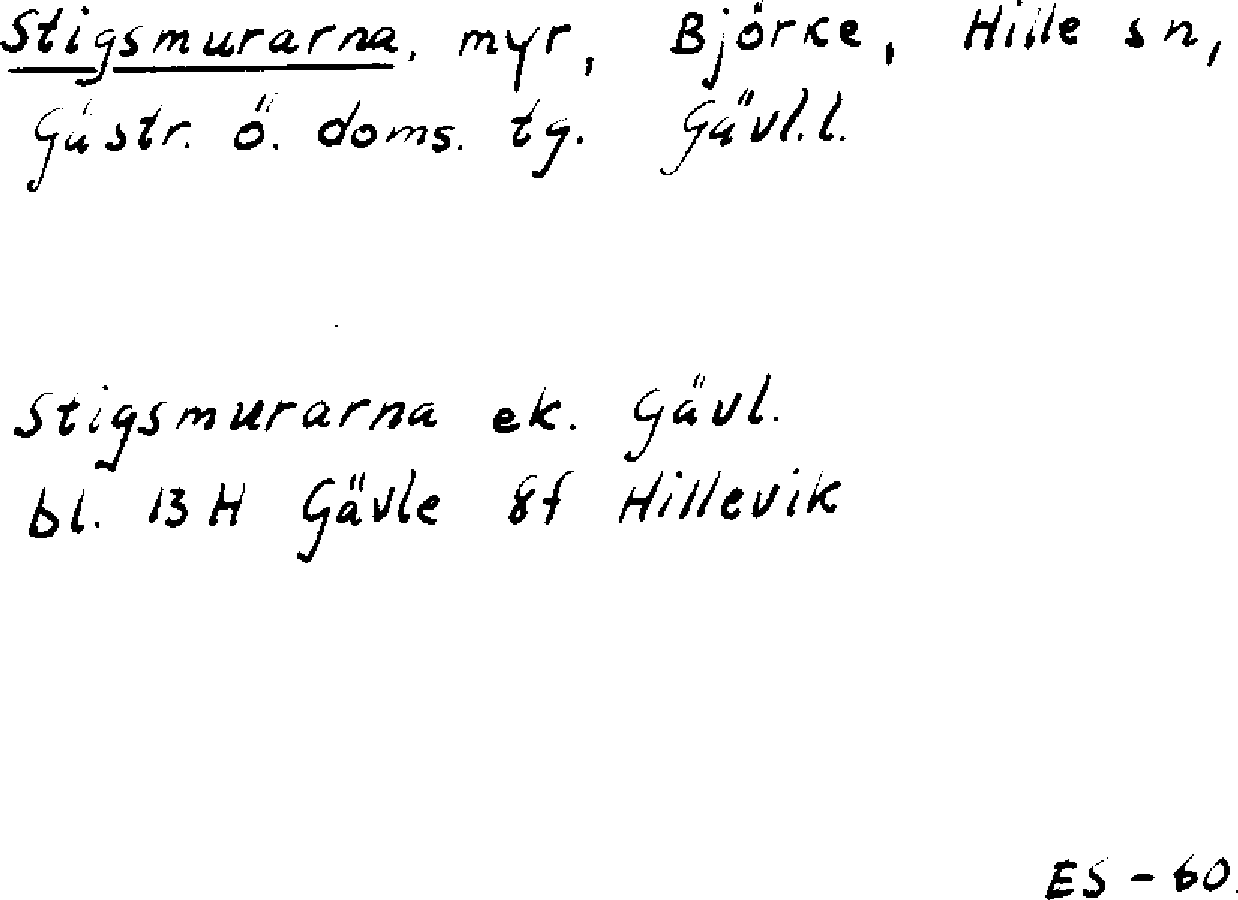 Stigsmurarna, myr, Björke, Hille sn,
Gästr. ö. doms. tg. Gävl.l.
Stigsmurarna ek. Gävl.
bl. 13 H Gävle 8f Hillevik
ES - 60.